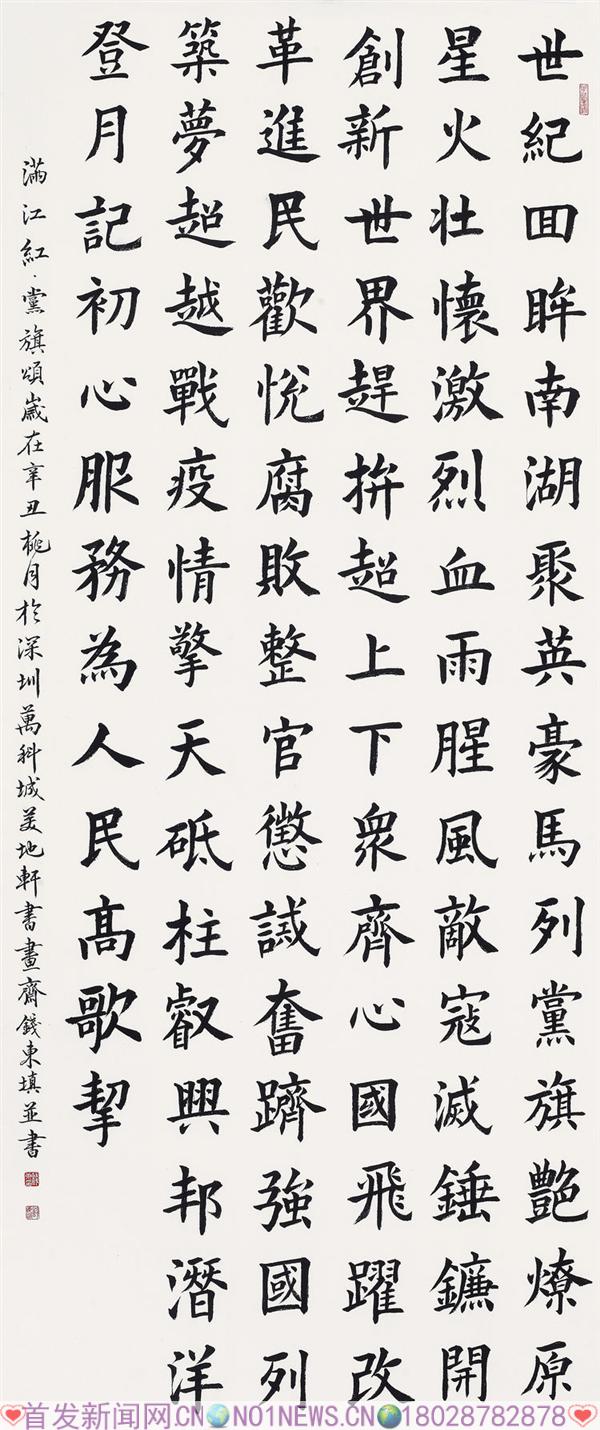 世紀回眸南湖聚英豪馬列黨旗艷燎原
星火壯懷激烈血雨腥風敵寇滅錘鐮開
創新世界趕拚超上下衆齊心國飛躍改
革進民歡悅腐敗整官懲誡奮躋強國列
築夢超越戰疫情擎天砥柱叡興邦潛洋
登月記初心服務為人民高歌挈
滿江紅·黨旗頌歲在辛丑桃月於深圳萬科城美地軒書畫齋錢東填並書
首发新闻网.CN NO1NEWS.CN 18028782878